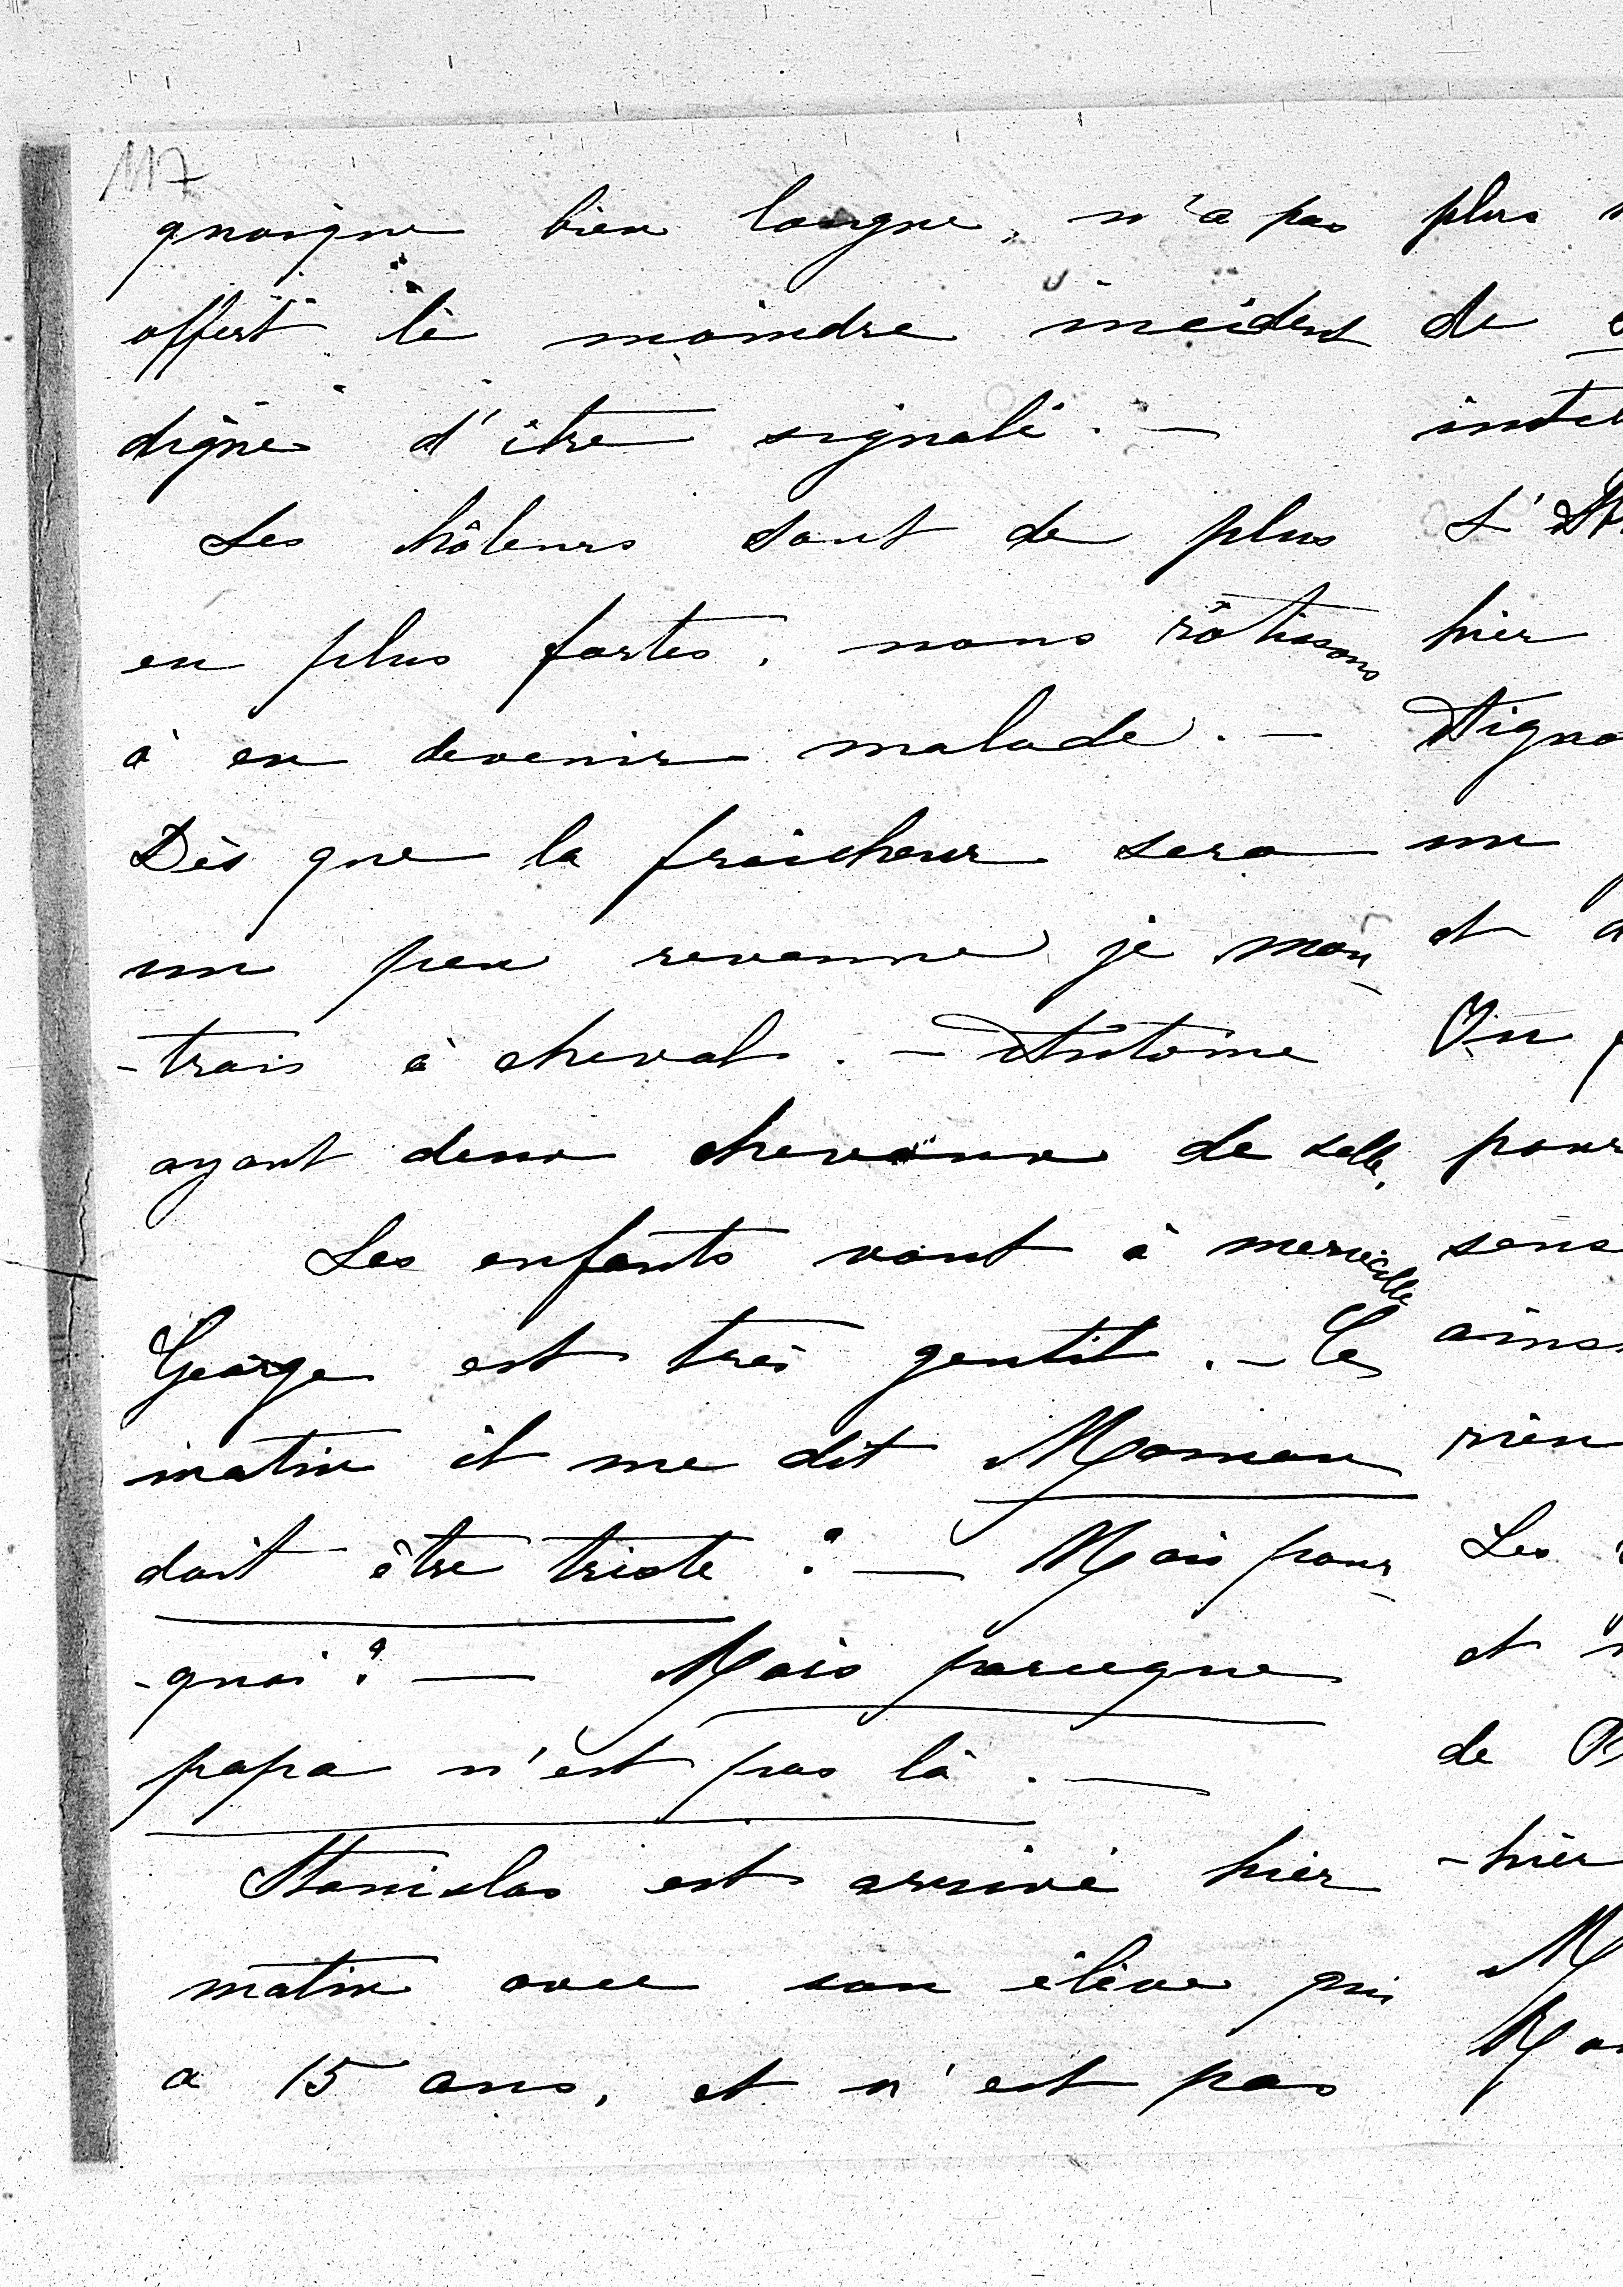 117
quoique bien longue, n'a pas
offert le moindre incident
digne d'être signalé. —
Les châleurs sont de plus
en plus fortes, nous rôtissons
à en devenir malade. —
Dès que la fraicheur sera
un peu revenue je mon-
-trais à cheval. — Antoine
ayant deux chevaux de selle.
Les enfants vont à merveille
George est très gentil. — Ce
matin il me dit Maman
doit être triste ? — Mais pour-
-quoi ? — Mais parceque
papa n'est pas là. —
Stanislas est arrivé hier
matin avec son élève qui
a 15 ans, et n'est pas
plus
de
L'
hier
un
et
On
pour
rien
Les
et
de
-hier